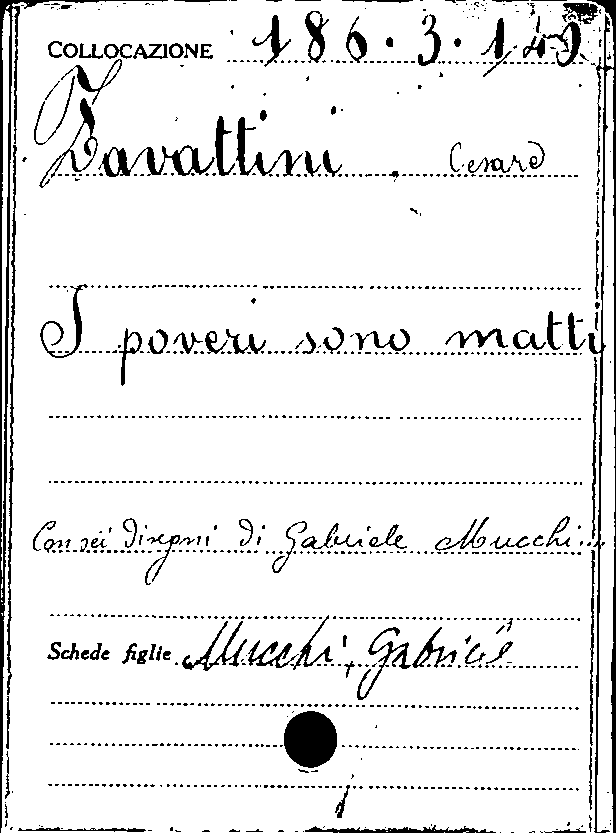 COLLOCAZIONE 186.3.149
Zavattini . Cesare
I poveri sono matti
Con sei disegni di Gabriele Mucchi...
Schede figlie Mucchi, Gabriele